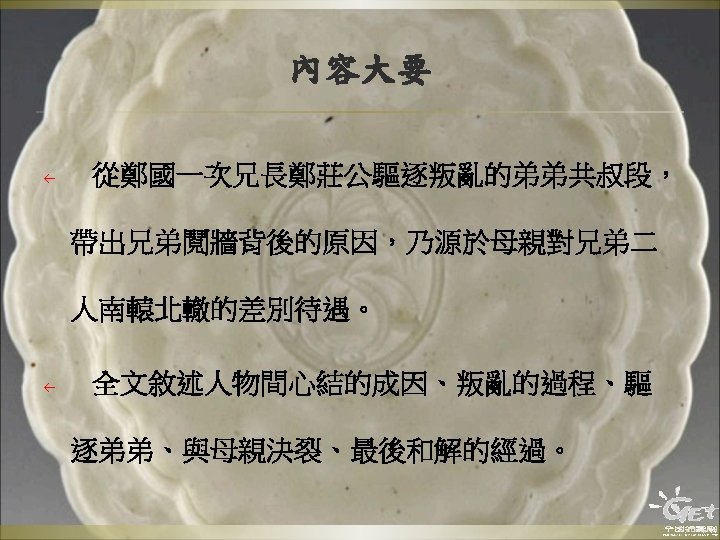 內容大要
← 從鄭國一次兄長鄭莊公驅逐叛亂的弟弟共叔段，
帶出兄弟鬩牆背後的原因，乃源於母親對兄弟二
人南轅北轍的差別待遇。
← 全文敘述人物間心結的成因、叛亂的過程、驅
逐弟弟、與母親決裂、最後和解的經過。